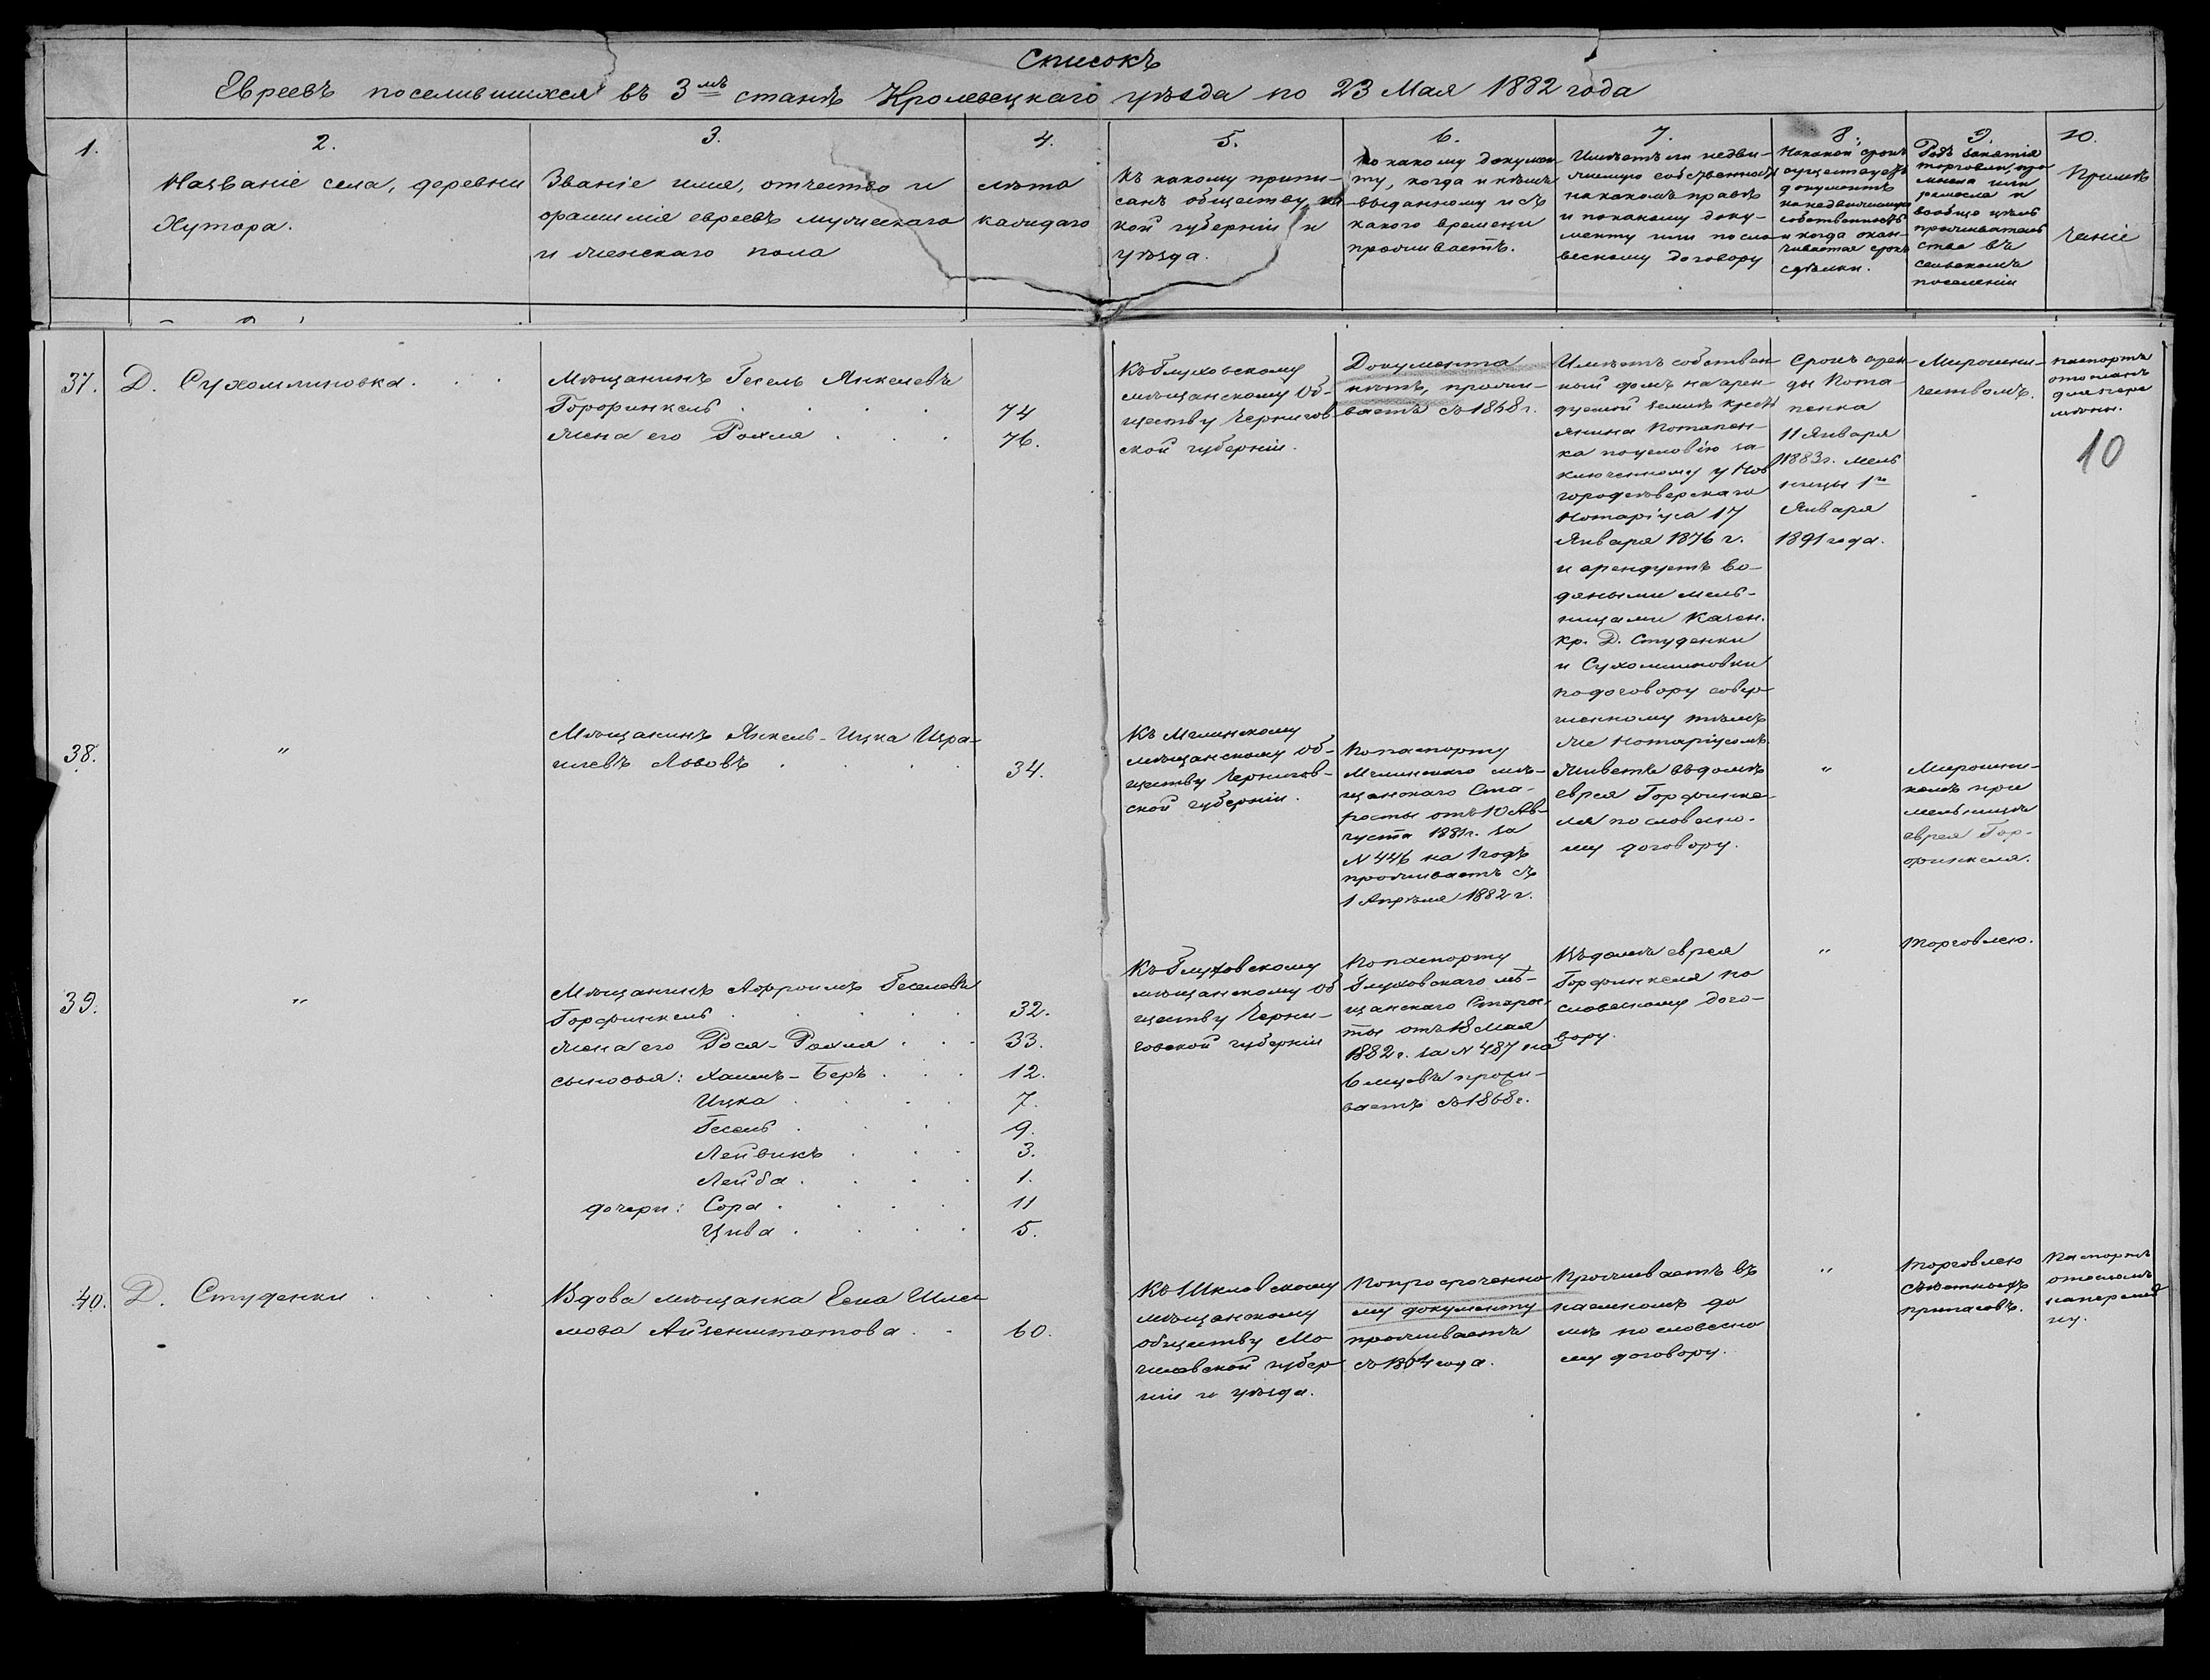 Списокъ
Евреевъ поселившихся въ 3мъ станѣ Кролевецкаго уѣзда по 23 Мая 1882 года
1.
2.
Названіе села, деревни
Хутора.
3.
Званіе имя, отчество и
фамилія евреевъ мужескаго
и женскаго пола
4.
лѣта
каждаго
5.
Къ какому припи-
санъ обществу, ка
кой губерніи и
уѣзда.
6.
по какому докумен
ту, когда и кѣмъ
выданному и съ
какого времени
проживаетъ.
7.
Имѣетъ ли недви-
жимую собственность
на какомъ правѣ
и по какому доку-
менту или по сло-
весному договору
8.
На какой срокъ
существуетъ
документъ
на недвижимую
собственность
и когда окан-
чивается срокъ
сдѣлки.
9.
Родъ занятія
торговли, про
мысла или
ремесла и
вообще цѣль
проживатель
ства въ
сельскомъ
поселеніи
10.
Примѣ
чаніе
37.
Д. Сухомлиновка.
Мѣщанинъ Гесель Янкелевъ
Горфинкель
74
жена его Рохля
76.
Къ Глуховскому
мѣщанскому Об-
ществу Чернигов
ской губерніи.
Документа
нѣтъ, прожи-
ваетъ съ 1858 г.
Имѣетъ собствен
ный домъ на арен-
дуемой землѣ крест
янина Потапен-
ка по условію за-
ключенному у Нов
городсѣверскаго
Нотаріуса 17
Января 1876 г.
и арендуетъ во-
дяными мель-
ницами Казен.
кр. Д. Студенки
и Сухомлиновки
по договору совер-
шенному тѣмъ
же нотаріусомъ.
Срокъ арен-
ды Пота-
пенка
11 Января
1883 г. мель
ницы 1го
Января
1891 года.
Мирошни-
чествомъ.
паспортъ
отосланъ
для пере
мѣны.
10
38.
"
Мѣщанинъ Янкель-Ицка Изра-
илевъ Львовъ
34.
Къ Мглинскому
мѣщанскому Об-
ществу Чернигов-
ской губерніи.
По паспорту
Мглинскаго мѣ-
щанскаго Ста-
росты отъ 10 Ав-
густа 1881 г. за
№ 446 на 1 годъ
проживаетъ съ
1 Апрѣля 1882 г.
Живетъ въ домѣ
еврея Горфинке-
ля по словесно-
му договору.
"
Мирошни-
комъ при
мельницѣ
еврея Гор-
финкеля.
39.
"
Мѣщанинъ Афроимъ Геселевъ
Горфинкель
32.
жена его Рося-Рохля
33.
сыновья: Хаимъ-Беръ
12.
Ицка
7.
Гесель
9.
Лейвикъ
3.
Лейба
1.
дочери: Сора
11
Цива
5.
Къ Глуховскому
мѣщанскому Об
ществу Черни-
говской губерніи
По паспорту
Глуховскаго мѣ-
щанскаго Старос
ты отъ 18 Мая
1882 г. за № 487 на
6 мцевъ прожи-
ваетъ съ 1868 г.
Въ домѣ еврея
Горфинкеля по
словесному дого-
вору.
"
торговлею.
40.
Д. Студенки
Вдова мѣщанка Есна Шле
мова Айзенштатова
60.
Къ Шкловскому
мѣщанскому
обществу Мо-
гилевской губер
ніи и уѣзда.
По просроченно
му документу
проживаетъ
съ 1864 года.
Проживаетъ въ
наемномъ до
мѣ по словесно
му договору.
"
торговлею
съѣстныхъ
припасовъ.
Паспортъ
отосланъ
на перемѣ
ну.